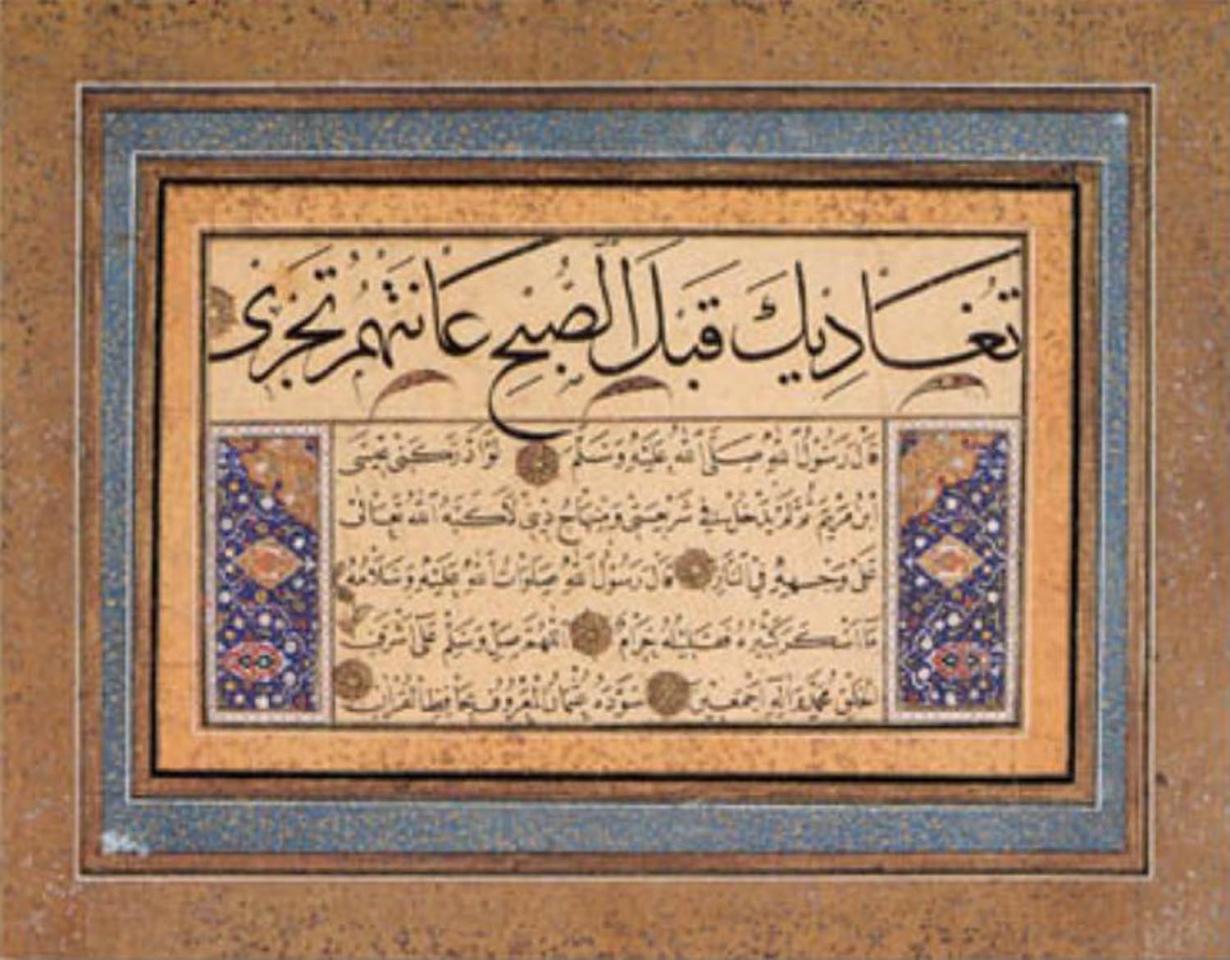 تغاديك قبل الصبح عانتهم تجزى
قال رسول الله صلى الله عليه وسلم لو ادركني عيسى
ابن مريم ثم لم يدخل في شرعيتي ومنهاج ديني لاكبه الله تعالى
على وجهه في النار قال رسول الله صلوات الله عليه وسلامه
ما اسكر كثيره فقليله حرام اللهم صل وسلم على اشرف
الخلق محمد واله اجمعين سوده عثمان المعروف بحافظ القران